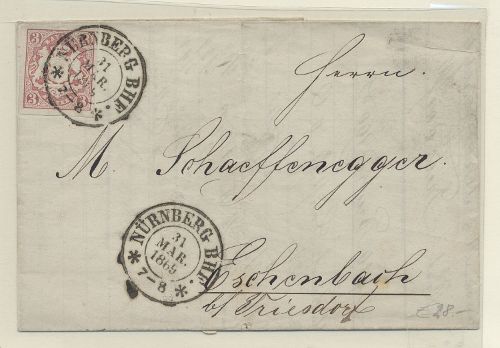 3 3
3 3
NÜRNBERG BHF.
31
MÄR.
7-8
Herrn.
M. Schaeffenegger.
NÜRNBERG BHF.
31
MÄR.
1869
7-8
Eschenbach
b/ Triesdorf
£28.-